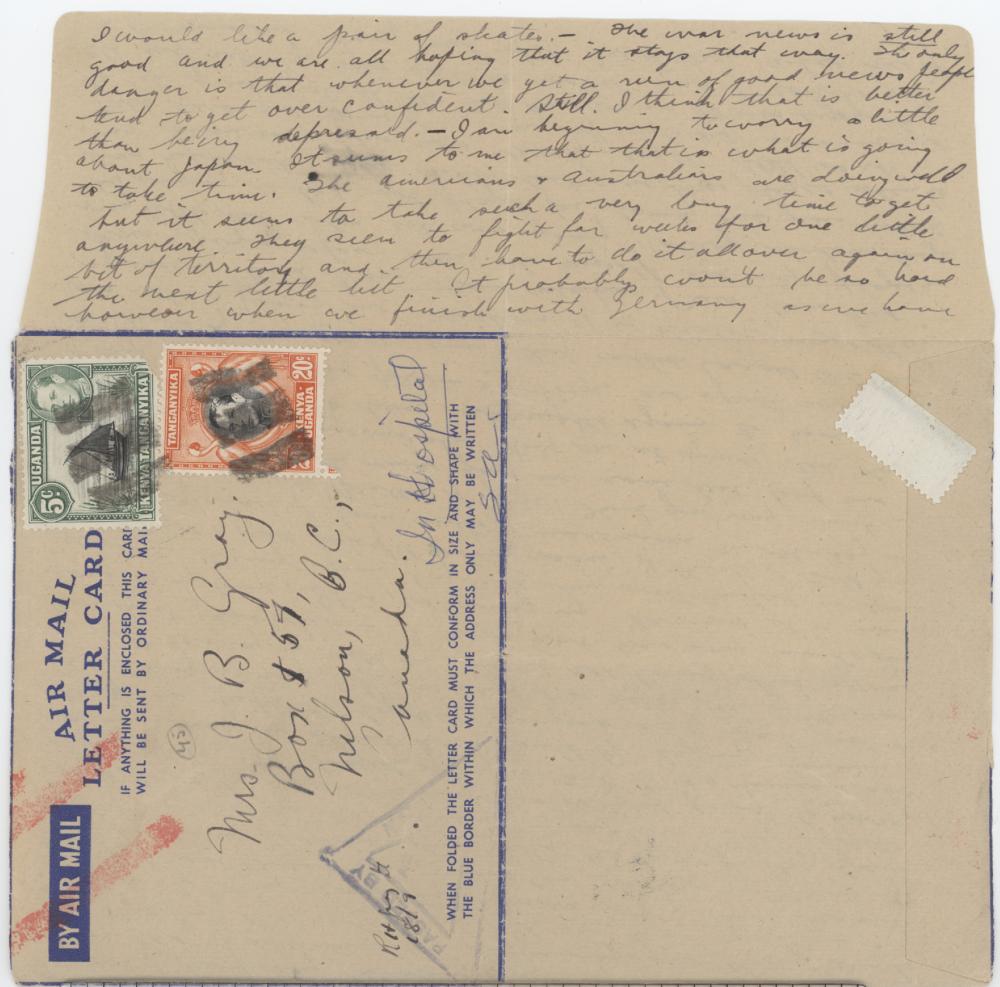 I would like a pair of skates. — The war news is still
good and we are all hoping that it stays that way. The only
danger is that whenever we get a run of good news people
tend to get over confident. Still I think that is better
than being depressed. — I am beginning to worry a little
about Japan. It seems to me that that is what is going
to take time. The americans & australians are doing well
but it seems to take such a very long time to get
anywhere. They seem to fight for weeks for one little
bit of territory and then have to do it all over again on
the next little bit. It probably won't be so hard
however when we finish with Germany as we have
UGANDA
5c
KENYA TANGANYIKA
TANGANYIKA
20c
KENYA-
UGANDA
BY AIR MAIL
AIR MAIL
LETTER CARD
IF ANYTHING IS ENCLOSED THIS CARD
WILL BE SENT BY ORDINARY MAIL.
Mrs. J. B. Gray,
Box 857,
Nelson, B.C.,
Canada.
In Hospital
WHEN FOLDED THE LETTER CARD MUST CONFORM IN SIZE AND SHAPE WITH
THE BLUE BORDER WITHIN WHICH THE ADDRESS ONLY MAY BE WRITTEN
PASSED BY
18/9